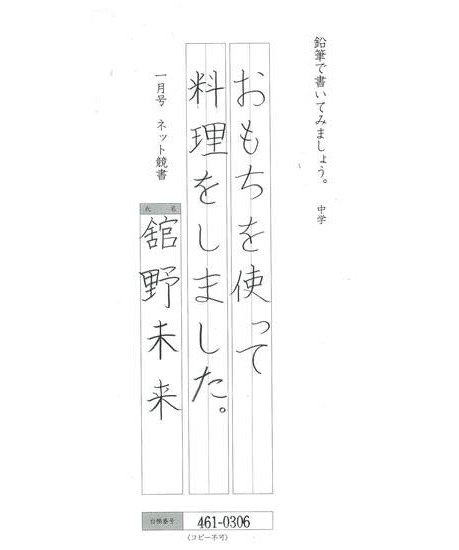 鉛筆で書いてみましょう。 中学
おもちを使って
料理をしました。
一月号 ネット競書
氏名
舘野未来
台帳番号 461-0306
(コピー不可)